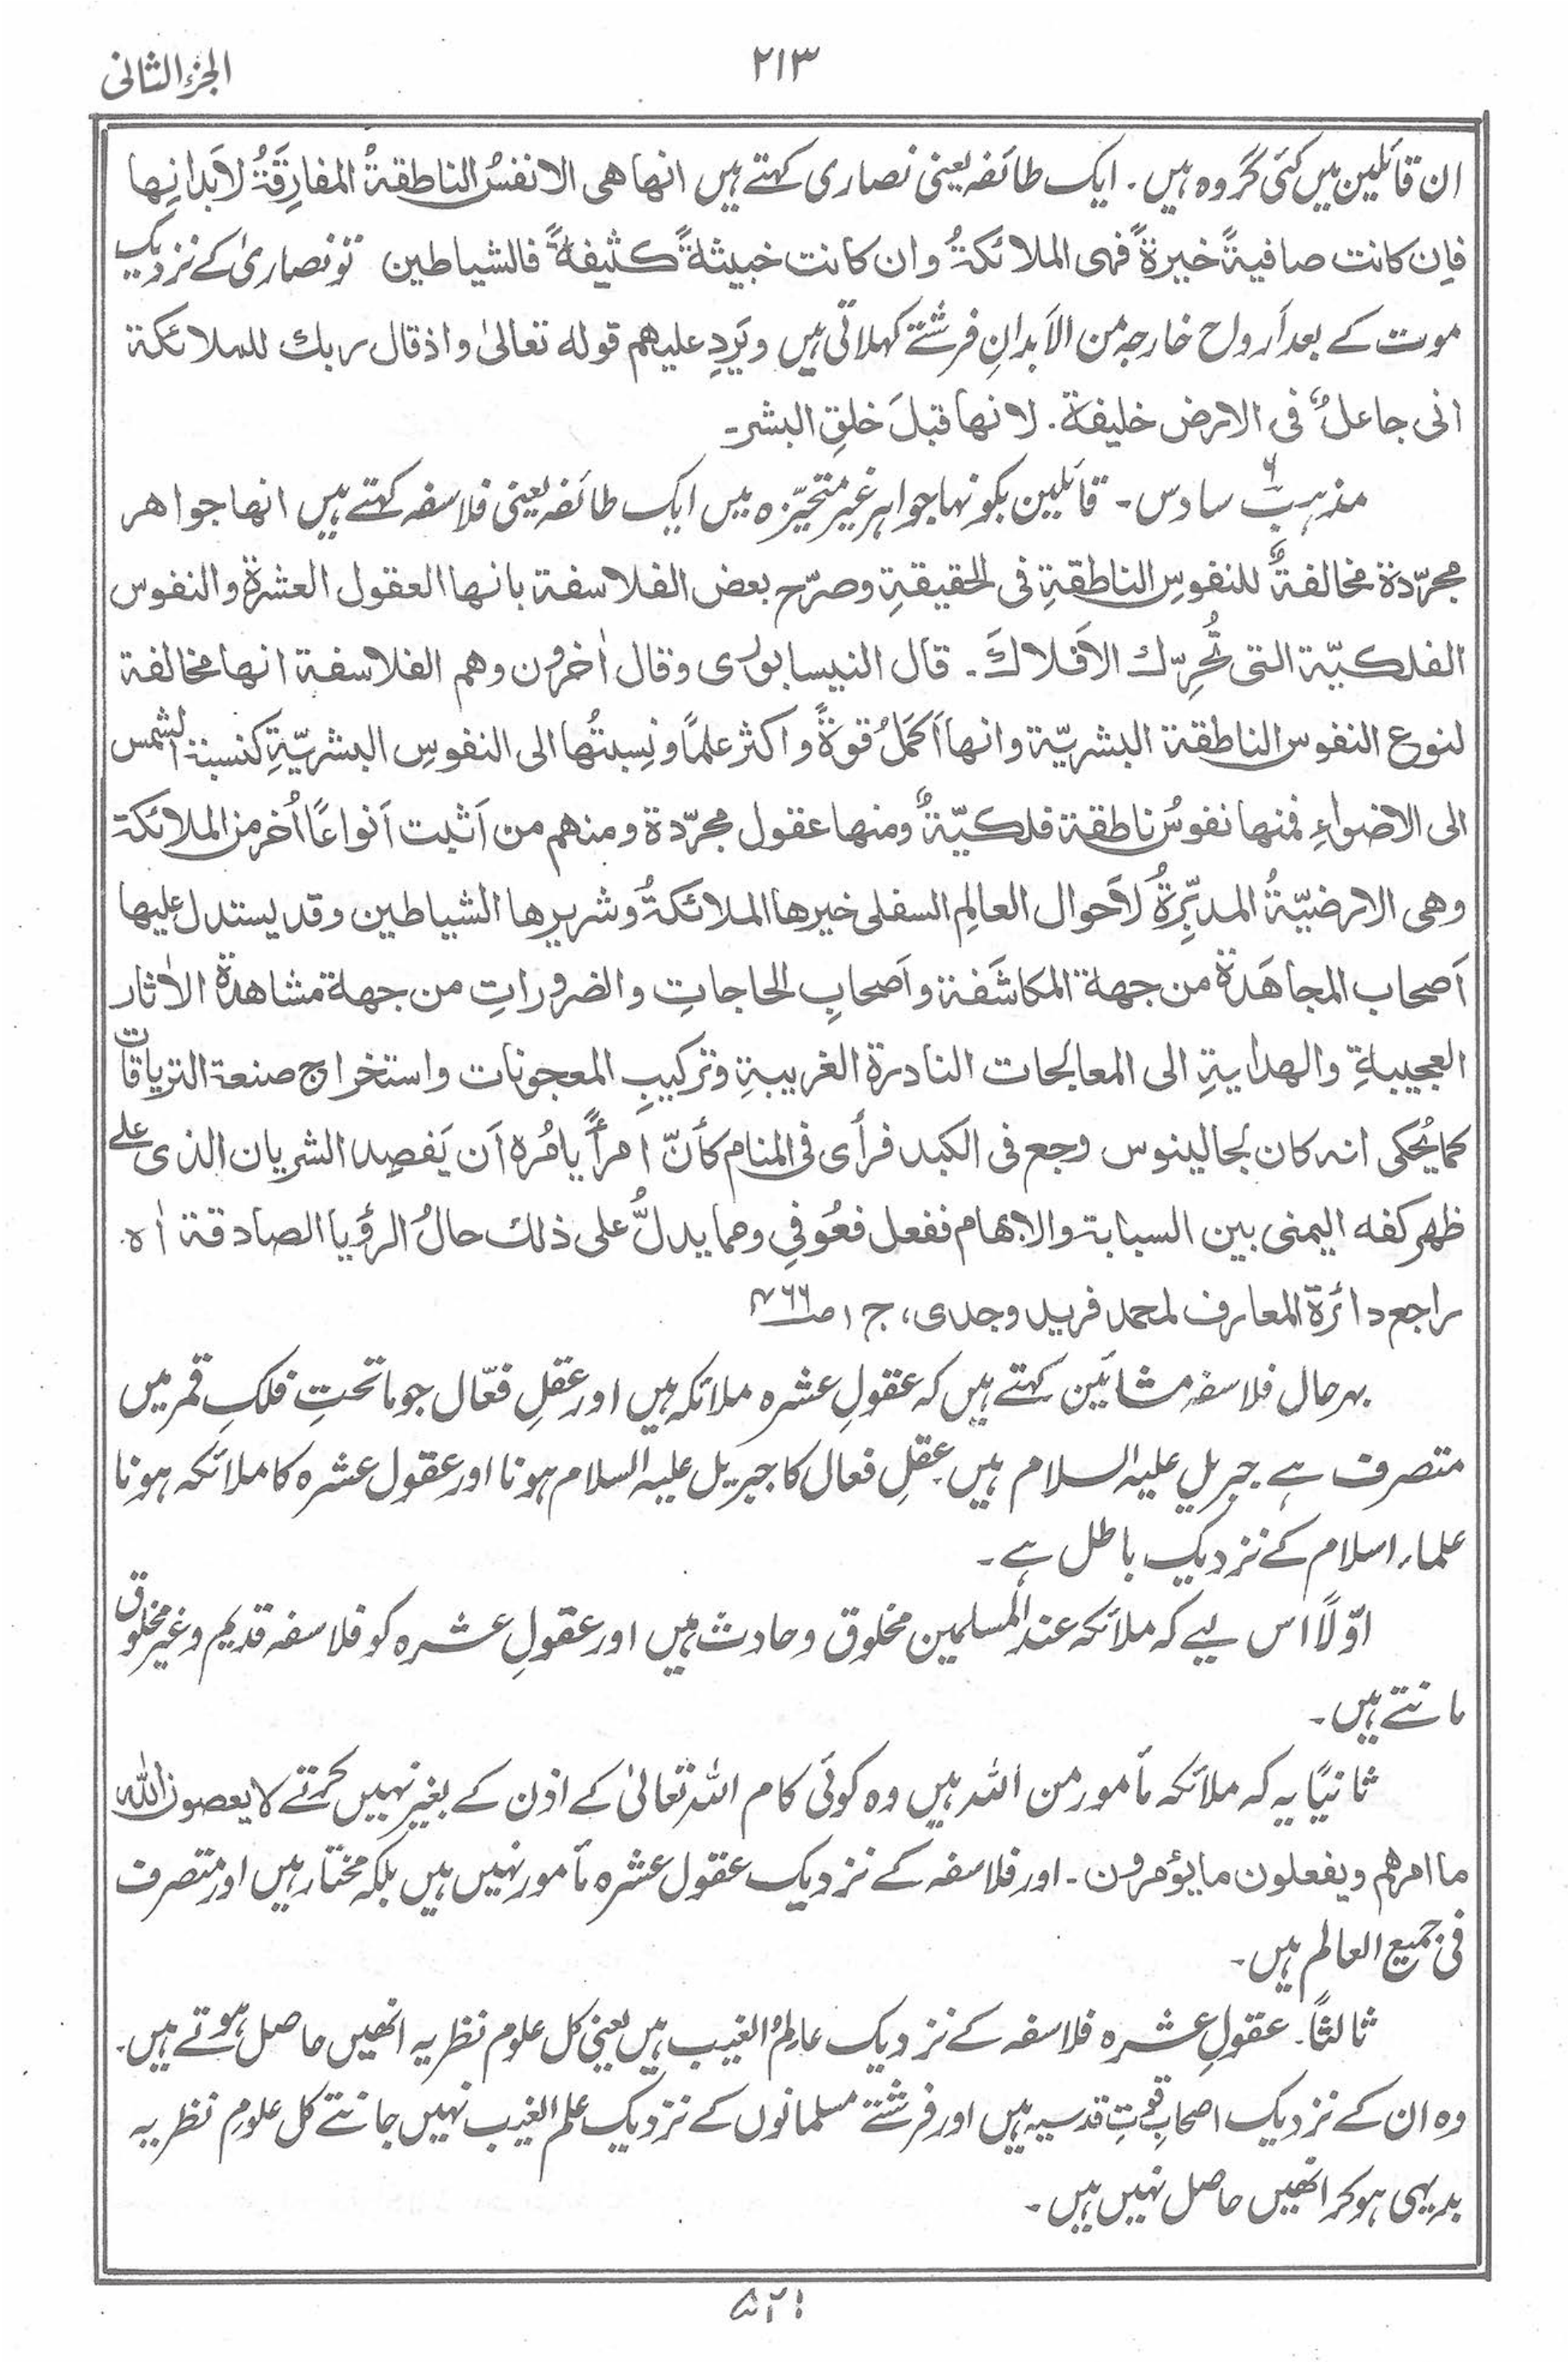 الجزء الثانی
۲۱۳
ان قائلین میں کئی گروہ ہیں۔ ایک طائفہ یعنی نصاری کہتے ہیں انھا ھی الانفسُ الناطقۃُ المفارِقَۃُ لاَبدانِھا
فاِن کانت صافیۃً خیرۃً فہی الملائکۃُ وان کانت خبیثۃً کثیفۃً فالشیاطین تو نصاریٰ کے نزدیک
موت کے بعد اَرواح خارجہ من الاَبدانِ فرشتے کہلاتی ہیں ویَرِدِ علیھم قولہ تعالیٰ واذ قال ربك للملائکۃ
انی جاعلٌ فی الارض خلیفۃ۔ لانھا قبلَ خلقِ البشر۔
مذہب ۶ سادس۔ قائلین بکونہا جواہر غیر متحیّزہ میں ایک طائفہ یعنی فلاسفہ کہتے ہیں انھا جواھر
مجرّدۃ مخالفۃٌ للنفوسِ الناطقۃِ فی الحقیقۃِ وصرّح بعض الفلاسفۃ بانھا العقول العشرۃ والنفوس
الفلکیّۃ التی تُحرِّك الاَفلاكَ۔ قال النیسابوری وقال اٰخرون وھم الفلاسفۃ انھا مخالفۃ
لنوع النفوس الناطقۃ البشریّۃ وانھا اَکمَلُ قوۃً واکثر علمًا ونِسبتُھا الی النفوسِ البشریّۃِ کنسبۃ الشمس
الی الاضواءِ فمنھا نفوسُ ناطقۃ فلکیّۃٌ ومنھا عقول مجرّدۃ ومنھم من اَثبت اَنواعًا اُخر من الملائکۃ
وھی الارضیّۃُ المدبِّرۃُ لاَحوال العالمِ السفلی خیرھا الملائکۃُ وشریرھا الشیاطین وقد یستدل علیھا
اَصحاب المجاھَدۃ من جھۃ المکاشَفۃ واَصحابِ الحاجاتِ والضروراتِ من جھۃ مشاھدۃ الاٰثار
العجیبۃِ والھدایۃِ الی المعالجات النادرۃ الغریبۃِ وترکیبِ المعجونات واستخراج صنعۃ التریاقات
کما یُحکی انہ کان لجالینوس وجع فی الکبد فرأی فی المنام کأنّ امرأً یامُرہ اَن یَفصِد الشریان الذی علے
ظھر کفہ الیمنی بین السبابۃ والابھام ففعل فعُوفِی ومما یدلُّ علی ذلك حالُ الرؤیا الصادقۃ اٰہ۔
راجع دائرۃ المعارف لمحمد فرید وجدی، ج ۱ ص
بہرحال فلاسفہ مشائین کہتے ہیں کہ عقولِ عشرہ ملائکہ ہیں اور عقلِ فعّال جو ماتحتِ فلکِ قمر میں
متصرف ہے جبریل علیہ السلام ہیں عقلِ فعال کا جبریل علیہ السلام ہونا اور عقول عشرہ کا ملائکہ ہونا
علماء اسلام کے نزدیک باطل ہے۔
اوّلاً اس لیے کہ ملائکہ عند المسلمین مخلوق وحادث ہیں اور عقولِ عشرہ کو فلاسفہ قدیم وغیر مخلوق
مانتے ہیں۔
ثانیًا یہ کہ ملائکہ مأمور من اللہ ہیں وہ کوئی کام اللہ تعالیٰ کے اذن کے بغیر نہیں کرتے لا یعصون اللہ
ما امرھم ویفعلون ما یؤمرون۔ اور فلاسفہ کے نزدیک عقول عشرہ مأمور نہیں ہیں بلکہ مختار ہیں اور متصرف
فی جمیع العالم ہیں۔
ثالثاً۔ عقولِ عشرہ فلاسفہ کے نزدیک عالمُ الغیب ہیں یعنی کل علوم نظریہ انھیں حاصل ہوتے ہیں۔
وہ ان کے نزدیک اصحابِ قوتِ قدسیہ ہیں اور فرشتے مسلمانوں کے نزدیک علم الغیب نہیں جانتے کل علومِ نظریہ
بدیہی ہوکر انھیں حاصل نہیں ہیں۔
۵۲۱